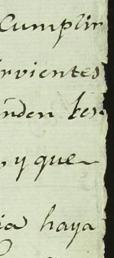 Cumplir
rvientes
nden los
, y que
ia haya